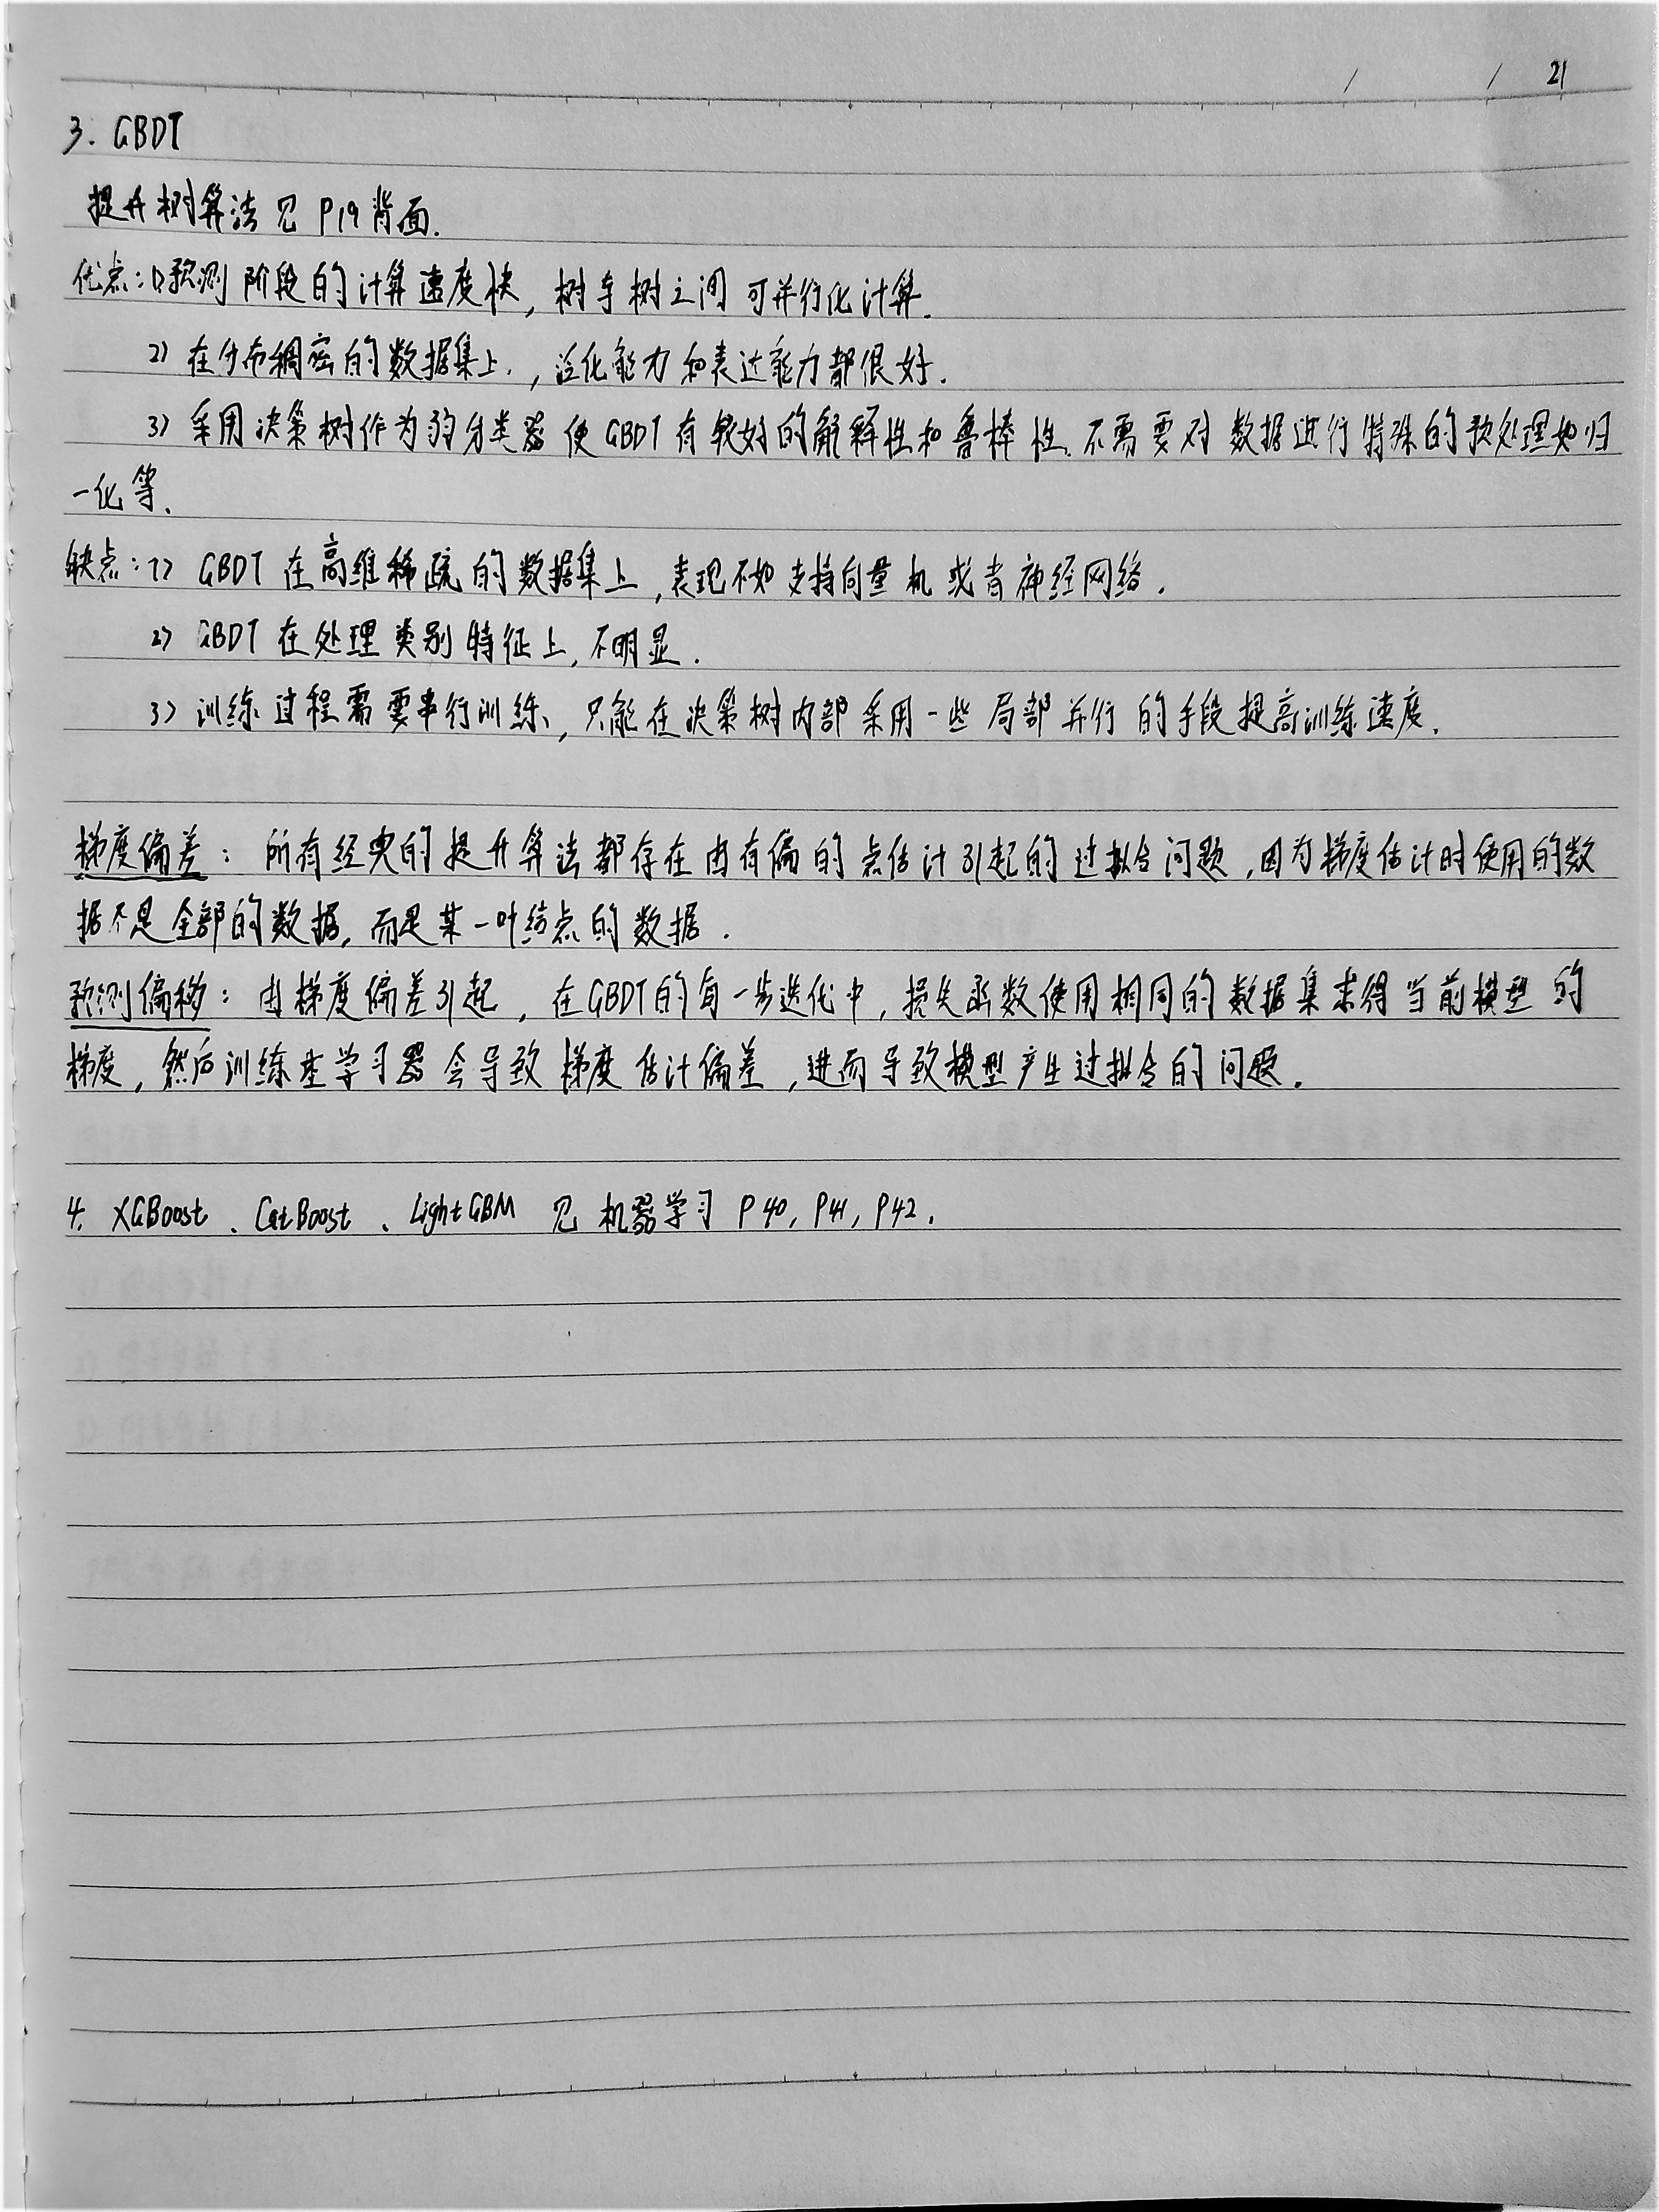 21
3. GBDT
提升树算法见 P19背面.
优点:1)预测阶段的计算速度快, 树与树之间可并行化计算.
2) 在分布稠密的数据集上, 泛化能力和表达能力都很好.
3) 采用决策树作为弱分类器使GBDT有较好的解释性和鲁棒性.不需要对数据进行特殊的预处理如归
一化等.
缺点:1) GBDT在高维稀疏的数据集上,表现不如支持向量机或者神经网络.
2) GBDT在处理类别特征上,不明显.
3) 训练过程需要串行训练, 只能在决策树内部采用一些局部并行的手段提高训练速度.
梯度偏差: 所有经典的提升算法都存在由有偏的点估计引起的过拟合问题,因为梯度估计时使用的数
据不是全部的数据,而是某一叶结点的数据.
预测偏移: 由梯度偏差引起, 在GBDT的每一步迭代中, 损失函数使用相同的数据集求得当前模型的
梯度, 然后训练基学习器会导致梯度估计偏差,进而导致模型产生过拟合的问题.
4. XGBoost、CatBoost、LightGBM 见 机器学习 P40, P41, P42.